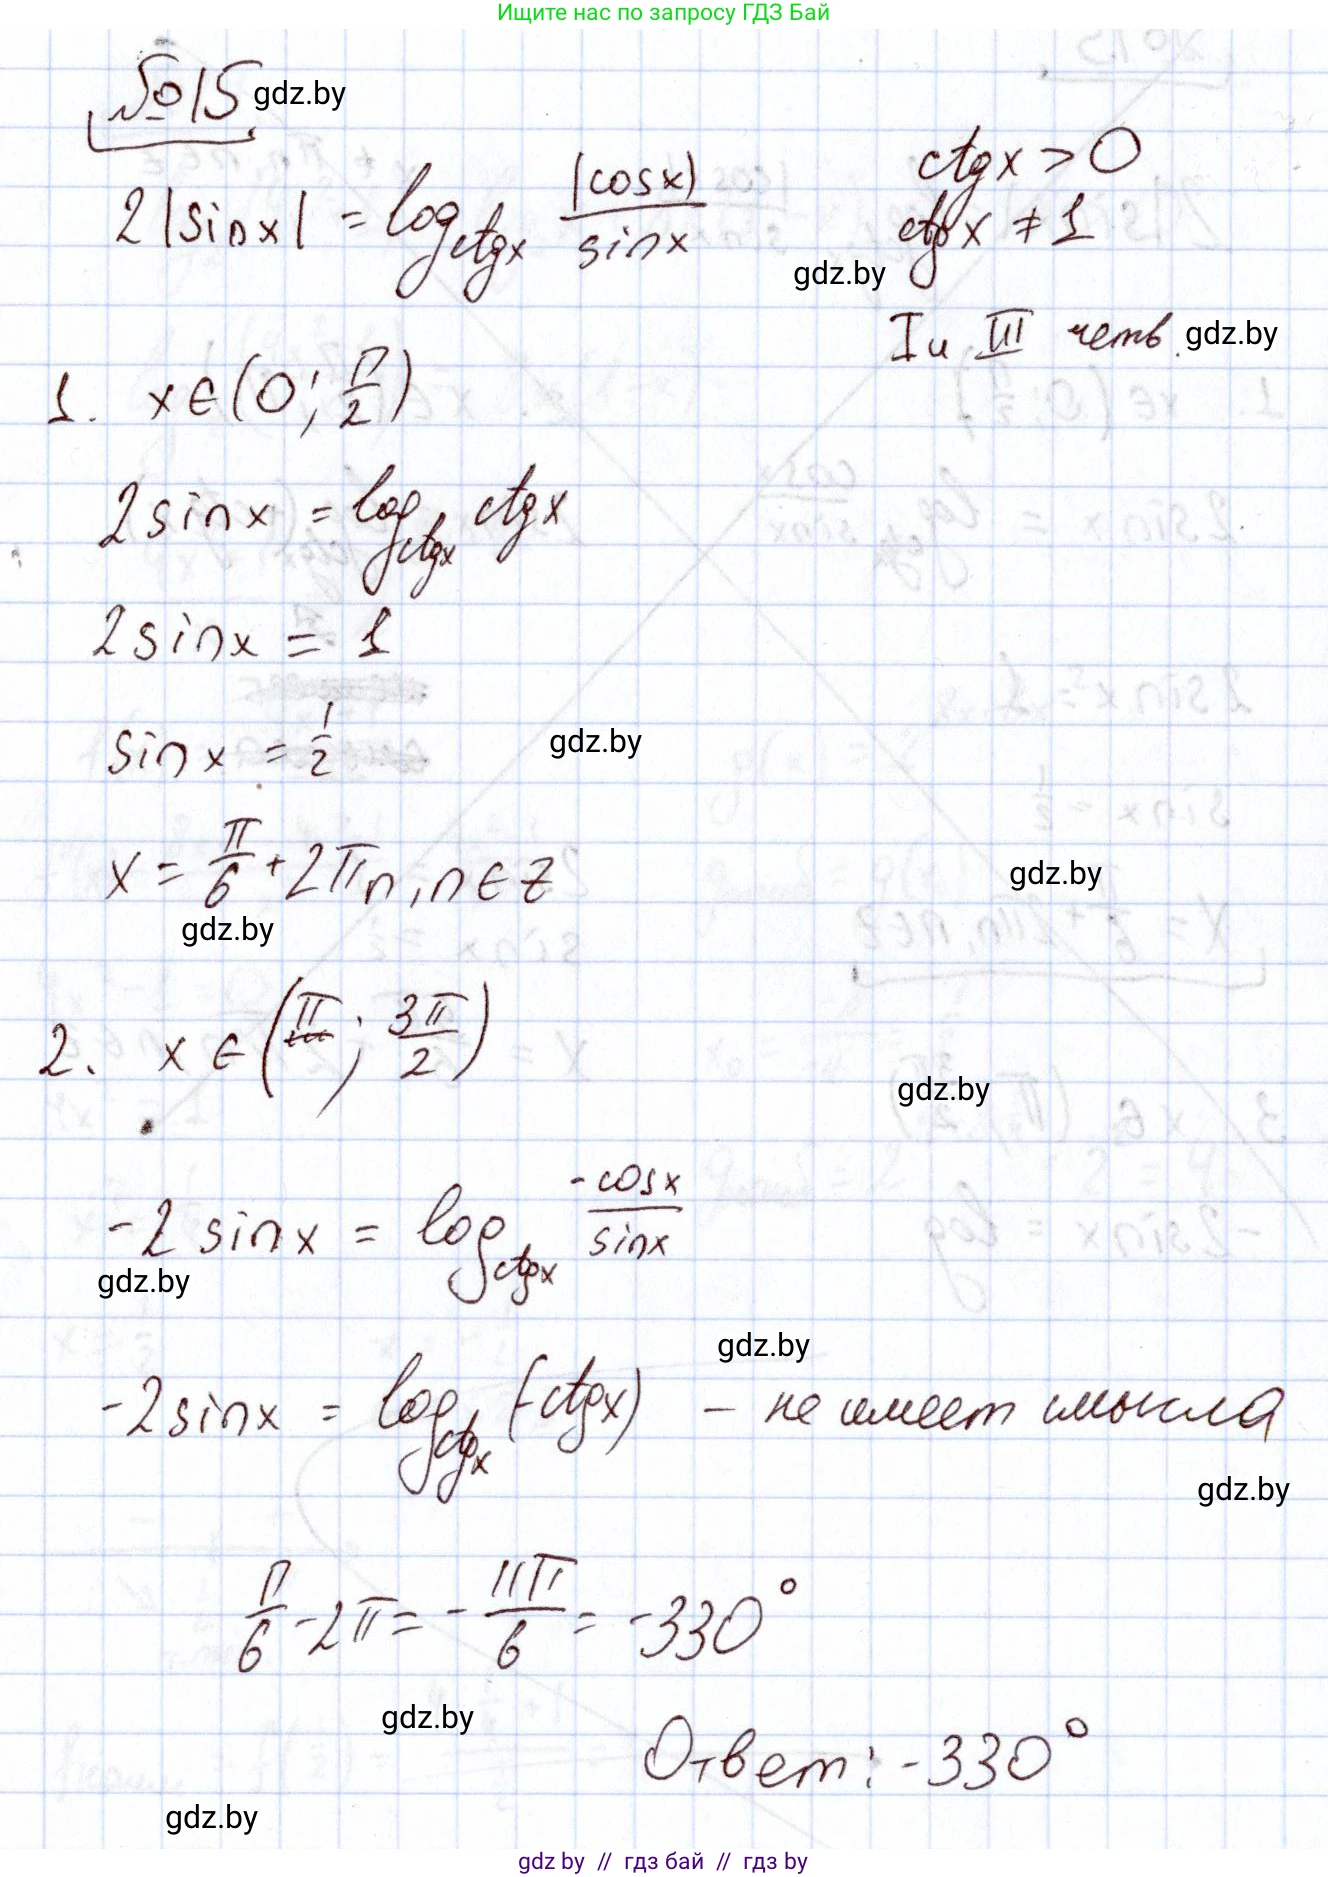 Ищите нас по запросу ГДЗ Бай
№15 gdz.by
2|sinx| = log_ctgx |cosx)/sinx
ctgx > 0
ctgx ≠ 1
gdz.by
I и III четв. gdz.by
1. x ∈ (0; π/2)
2sinx = log_ctgx ctgx
2sinx = 1
sinx = 1/2
gdz.by
x = π/6 + 2πn, n ∈ Z
gdz.by
gdz.by
2. x ∈ (π; 3π/2)
gdz.by
-2sinx = log_ctgx -cosx/sinx
gdz.by
gdz.by
-2sinx = log_ctgx (-ctgx) - не имеет смысла
gdz.by
π/6 - 2π = - 11π/6 = -330°
gdz.by
Ответ: -330°
gdz.by
gdz by // гдз бай // гдз by